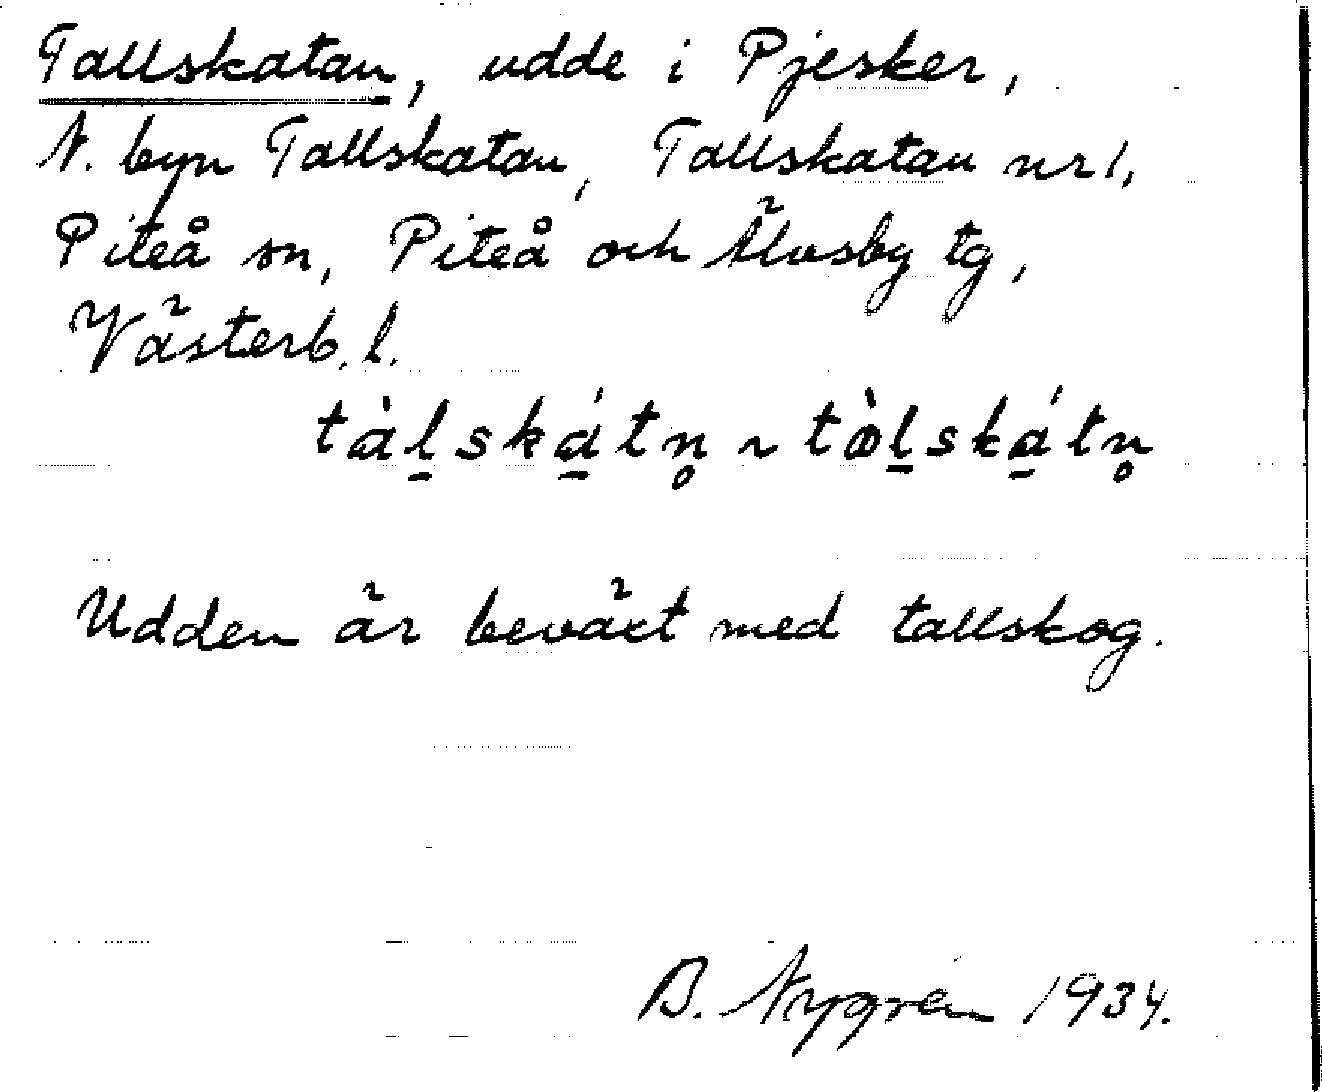 Tallskatan, udde i Pjesker,
N. byn Tallskatan, Tallskatan nr 1,
Piteå sn, Piteå och Älvsby tg,
Västerb. l.
tàl̠ská̠tn̥ ~ tò̀l̠ská̠tn̥
Udden är beväxt med tallskog.
B. Nygren 1934.